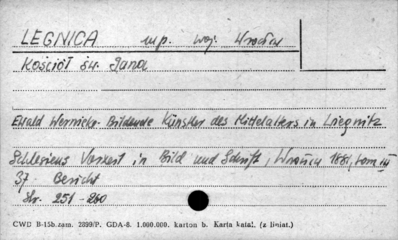 LEGNICA m.p. woj. Wrocław
Kościół św. Jana
Ewald Wernicke. Bildende Künstler des Mittelalters in Liegnitz
Schlesiens Vorzeit in Bild und Schrift, Wrocław 1881, tom III
37 - Bericht
Str. 251 - 260
CWD B-15b.zam. 2899/P. GDA-8. 1.000.000. karton b. Karta katal. (z liniat.)